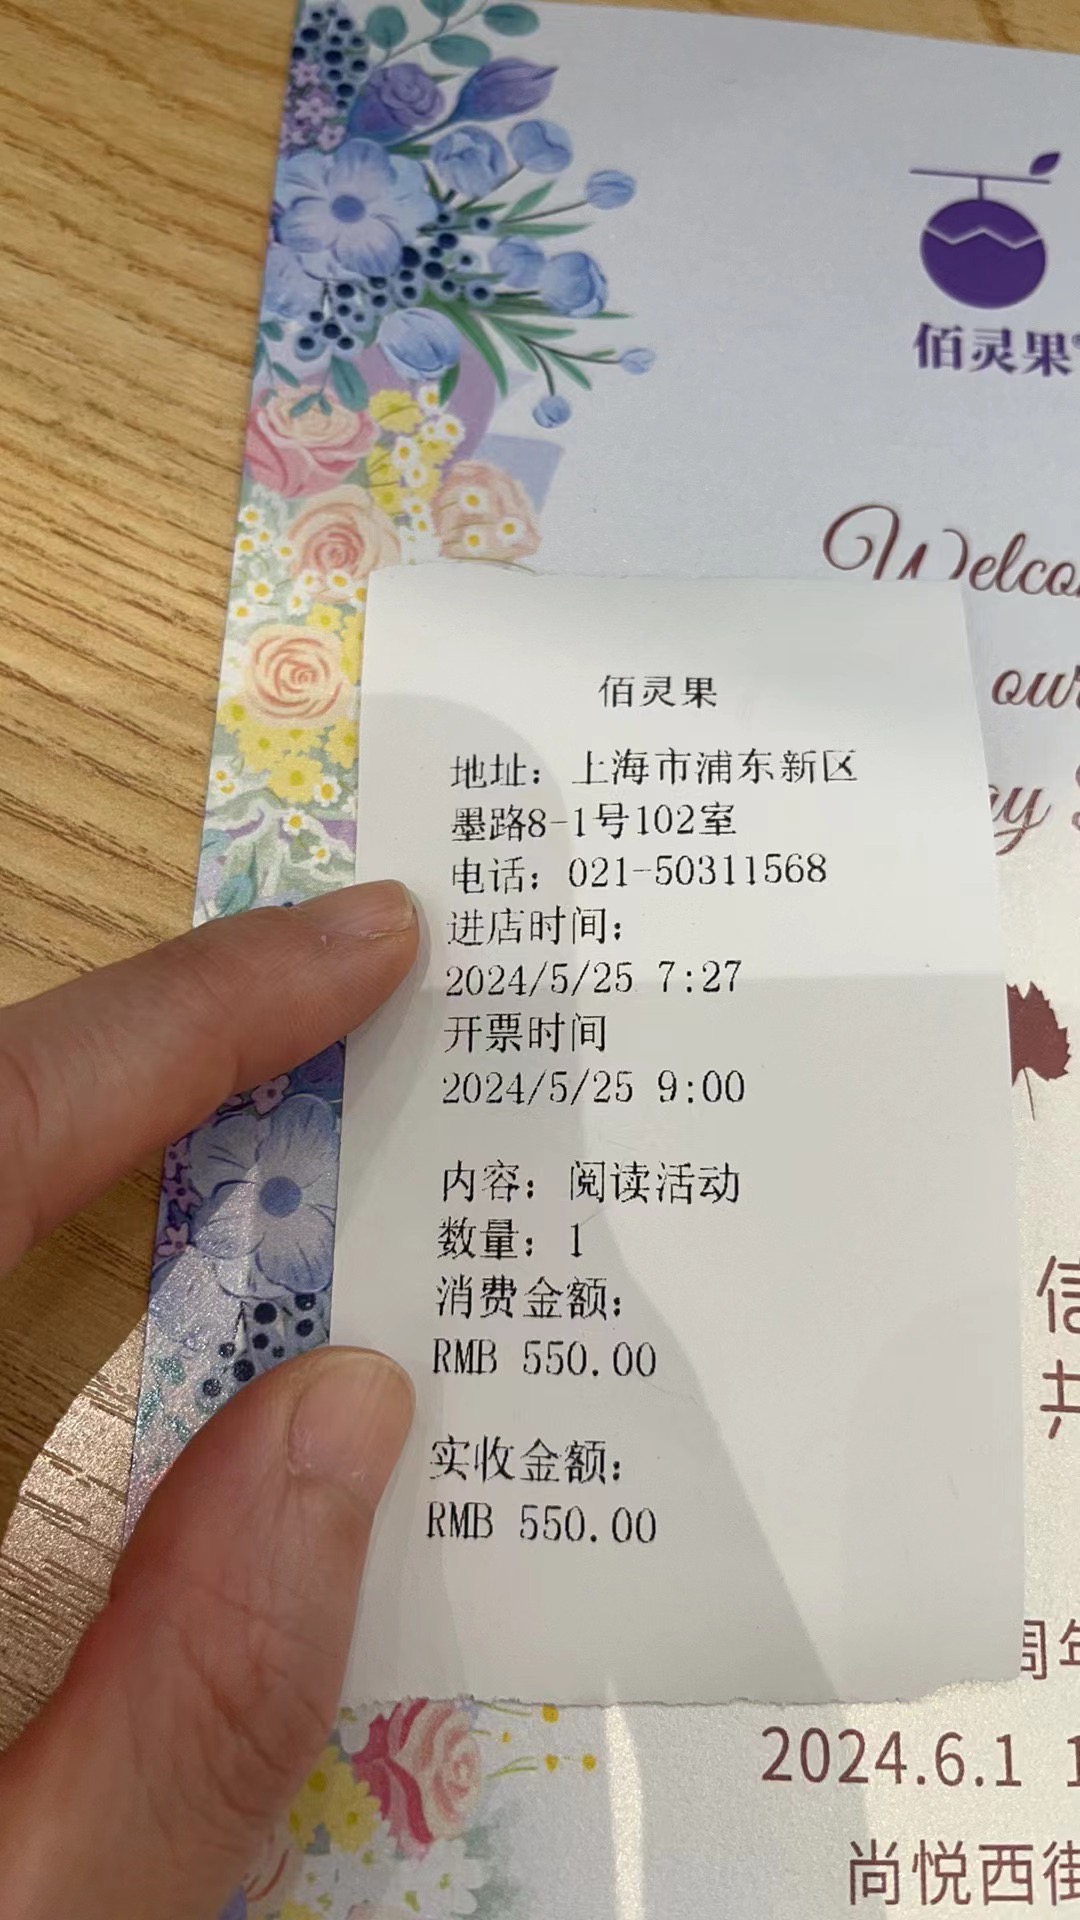 佰灵果
Welco
our
ay S
佰灵果
地址：上海市浦东新区
墨路8-1号102室
电话：021-50311568
进店时间：
2024/5/25 7:27
开票时间
2024/5/25 9:00
内容：阅读活动
数量：1
消费金额：
RMB 550.00
实收金额：
RMB 550.00
信
共
周年
2024.6.1 1
尚悦西街